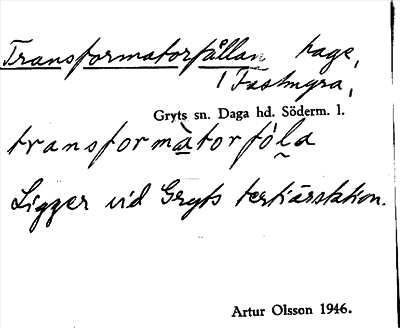 Transformatorfållan hage,
i Fastmyra,
Gryts sn. Daga hd. Söderm. l.
transformàtorfóla
Ligger vid Gryts tertiärstation.
Artur Olsson 1946.